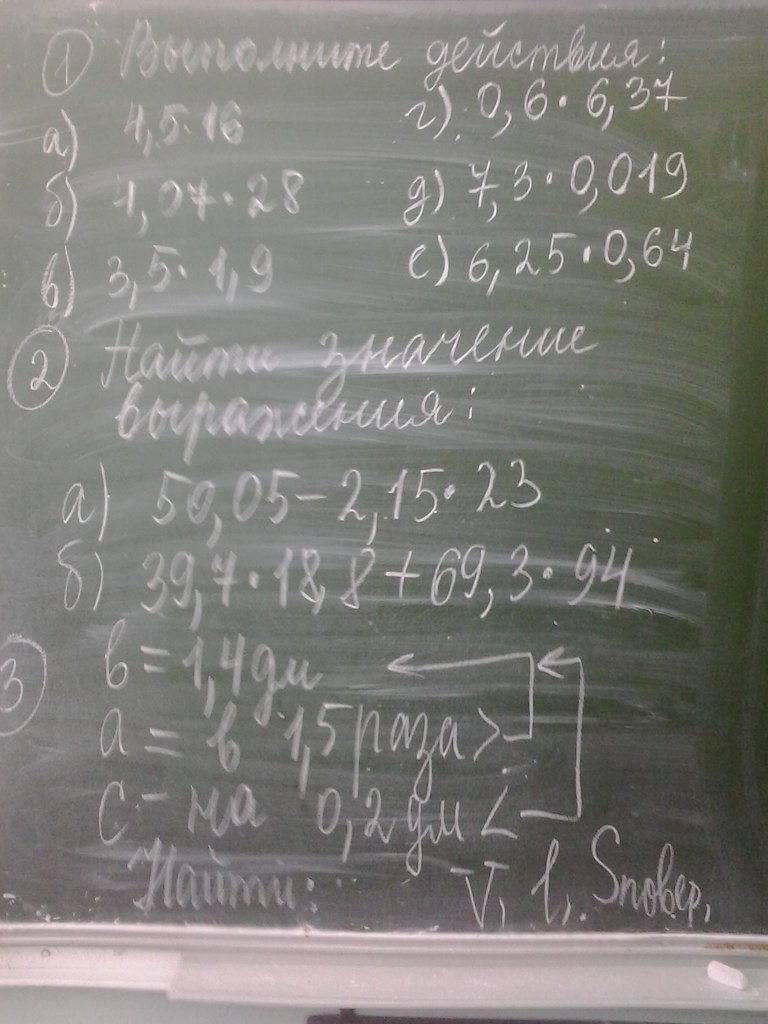 1 Выполните действия:
а) 4,5·16
б) 1,07·28
в) 3,5·1,9
г) 0,6·6,37
д) 7,3·0,019
е) 6,25·0,64
2 Найти значение
выражения:
а) 50,05-2,15·23
б) 39,7·18,8+69,3·94
3 b=1,4дм
a = в 1,5 раза >
c - на 0,2 дм <
Найти: V, l, Sповер.